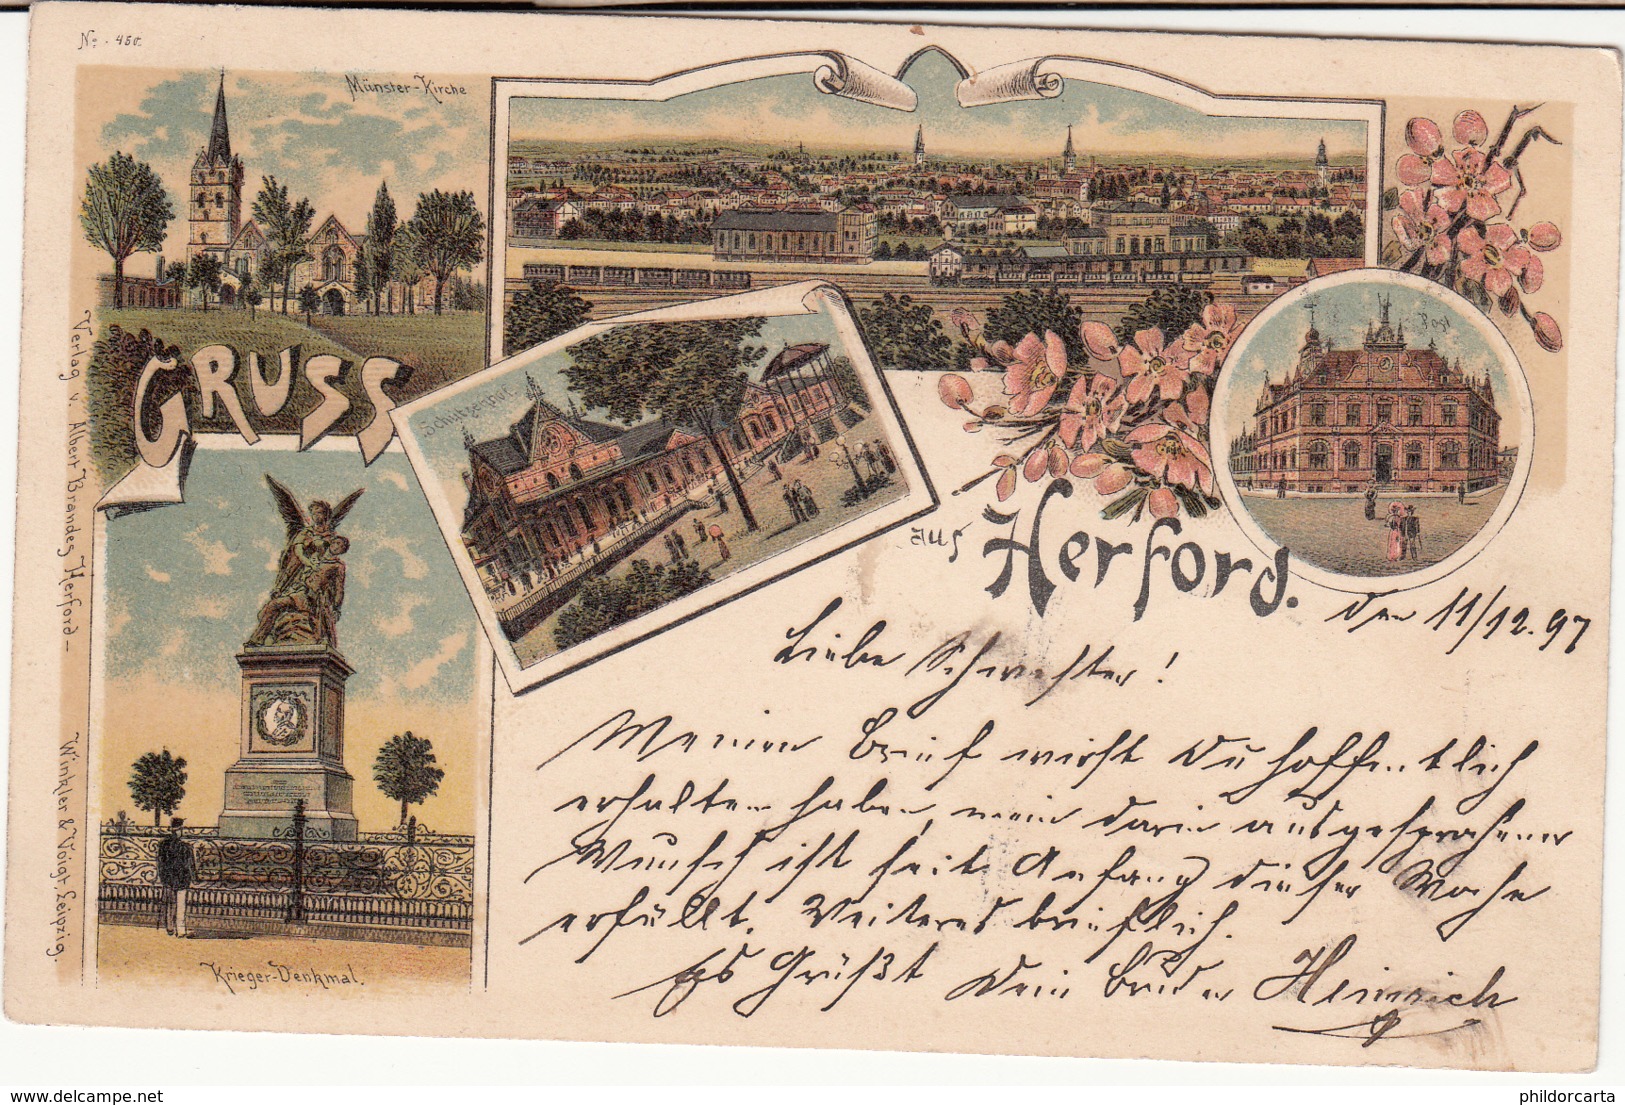 No. 450.
Münster-Kirche
GRUSS
Schützenhof
Post
aus Herford.
Krieger-Denkmal.
Verlag v. Albert Brandes Herford -
Winkler & Voigt, Leipzig.
den 11/12.97
Liebe Schwester!
Meinen Brief wirst Du hoffentlich
erhalten haben, mein darin ausgesprochener
Wunsch ist seit Anfang dieser Woche
erfüllt. Weiteres brieflich.
Es Grüßt Dein Bruder Heinrich
www.delcampe.net
phildorcarta